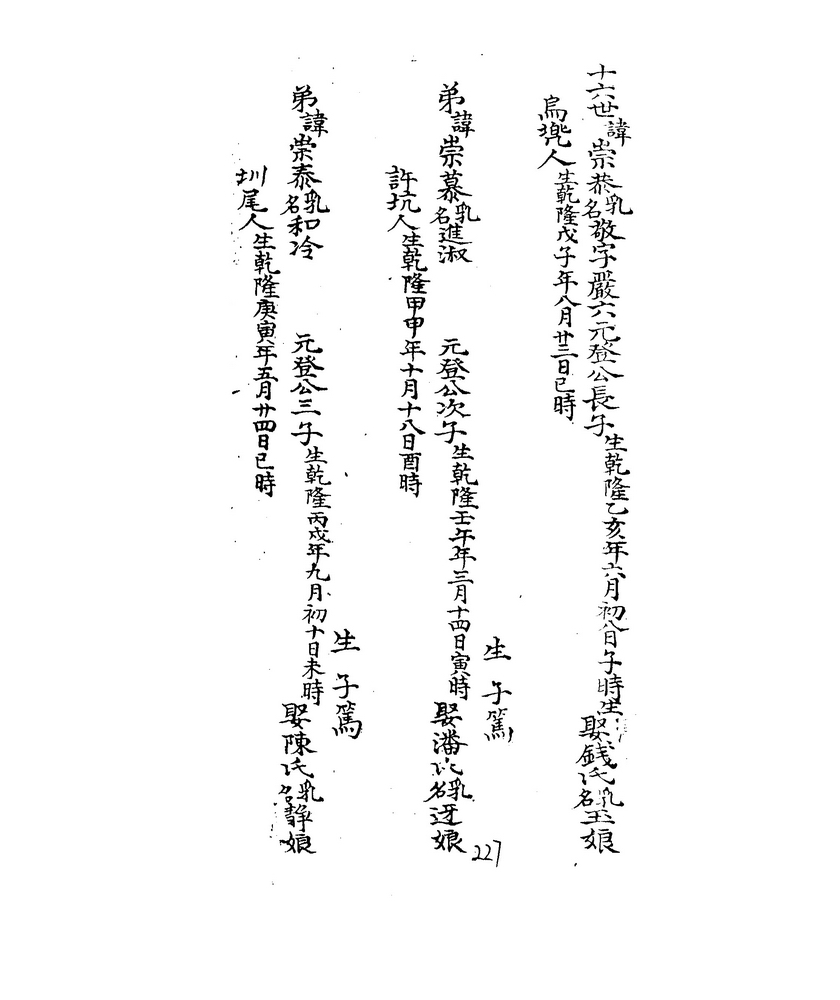 十六世諱崇恭乳名敬字嚴六元登公長子生乾隆乙亥年六月初八日子時生娶錢氏乳名玉娘
烏墘人生乾隆戊子年八月廿三日巳時
生子篤
弟諱崇慕乳名進淑 元登公次子生乾隆壬午年三月十四日寅時娶潘氏乳名迓娘
許坑人生乾隆甲申年十月十八日酉時
生子篤
弟諱崇泰乳名和冷 元登公三子生乾隆丙戌年九月初十日未時娶陳氏乳名靜娘
圳尾人生乾隆庚寅年五月廿四日巳時
227